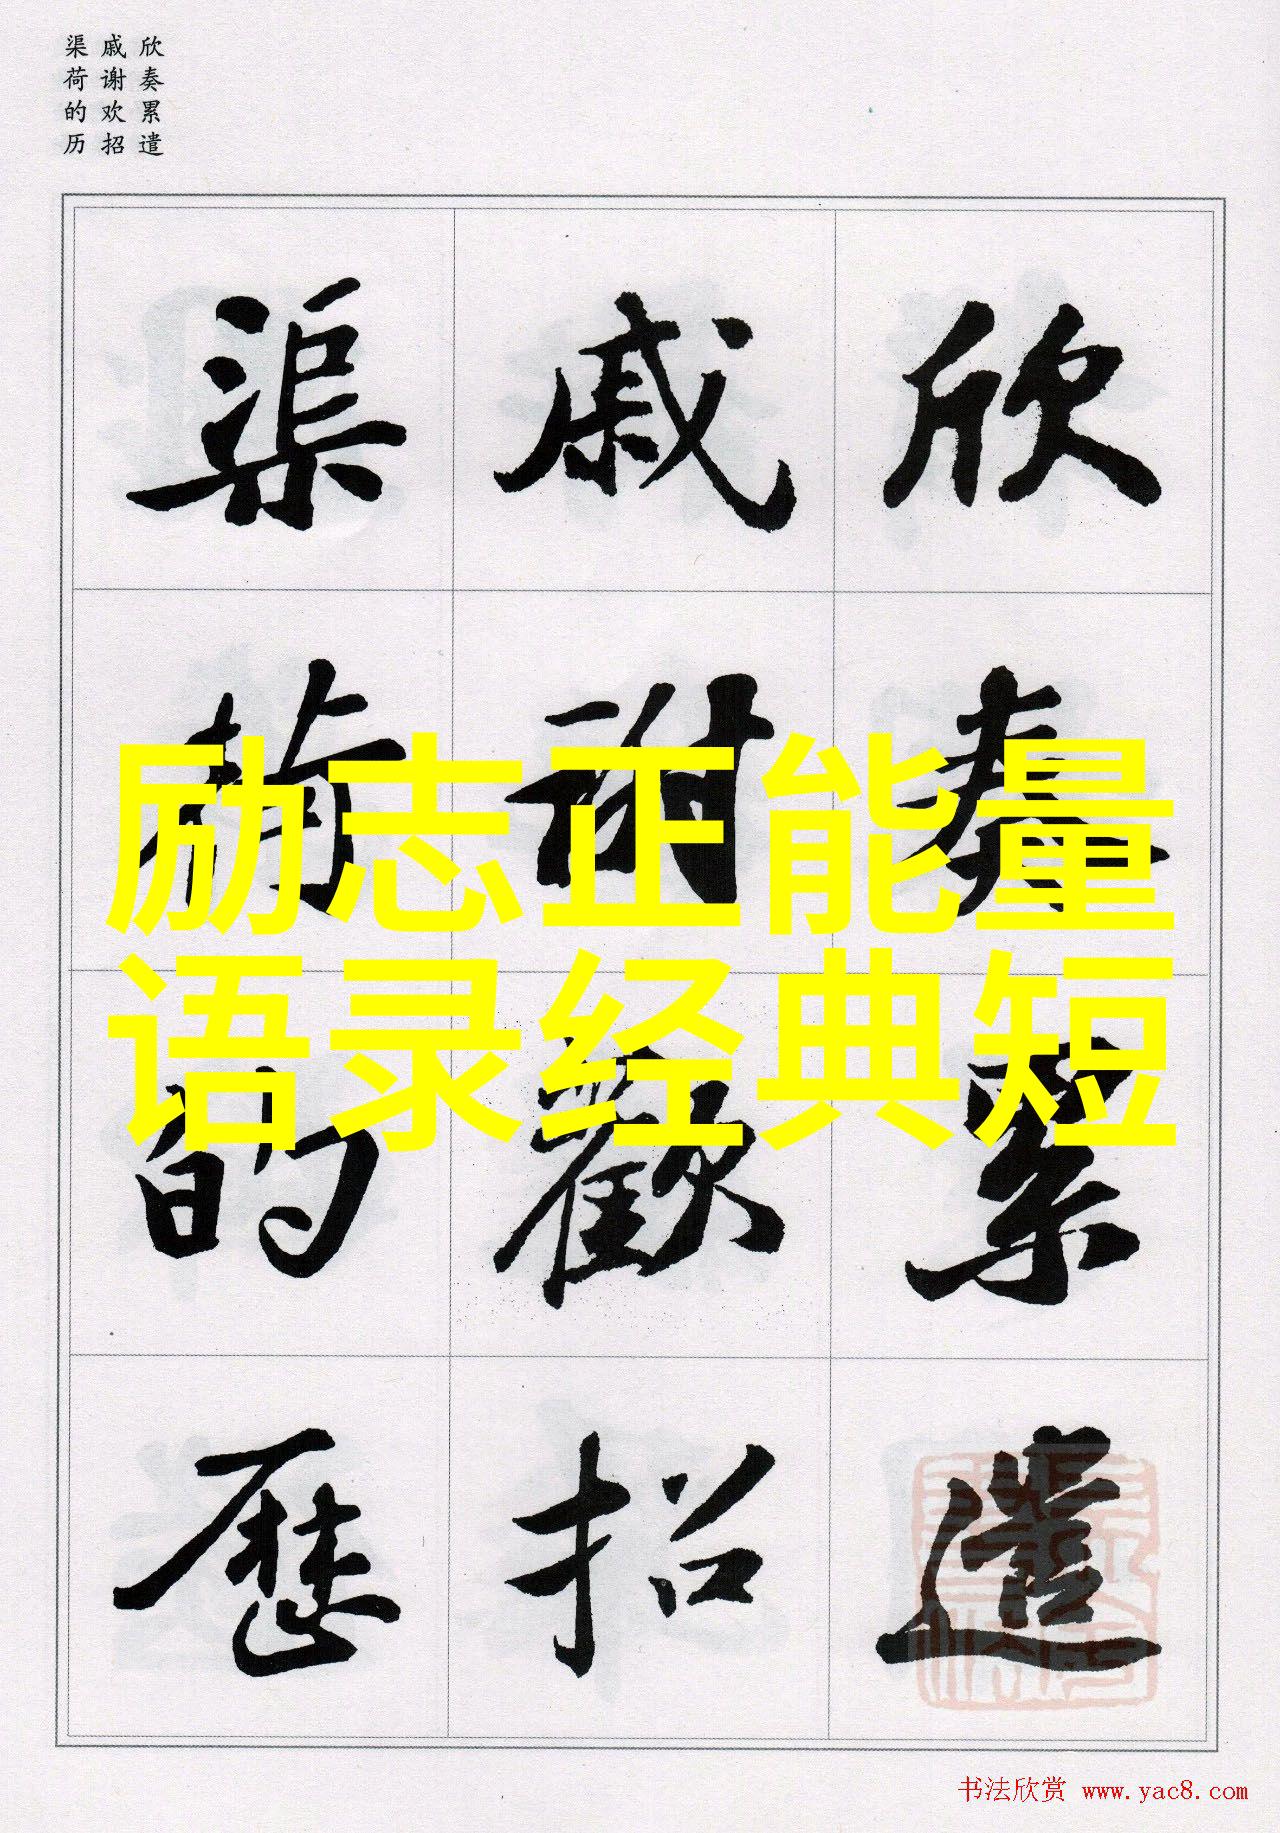 欣奏累遣
戚谢欢招
渠荷的历
欣奏累遣
戚謝歡招
渠荷的歷
励志正能量
语录经典短
书法欣赏 www.yac8.com